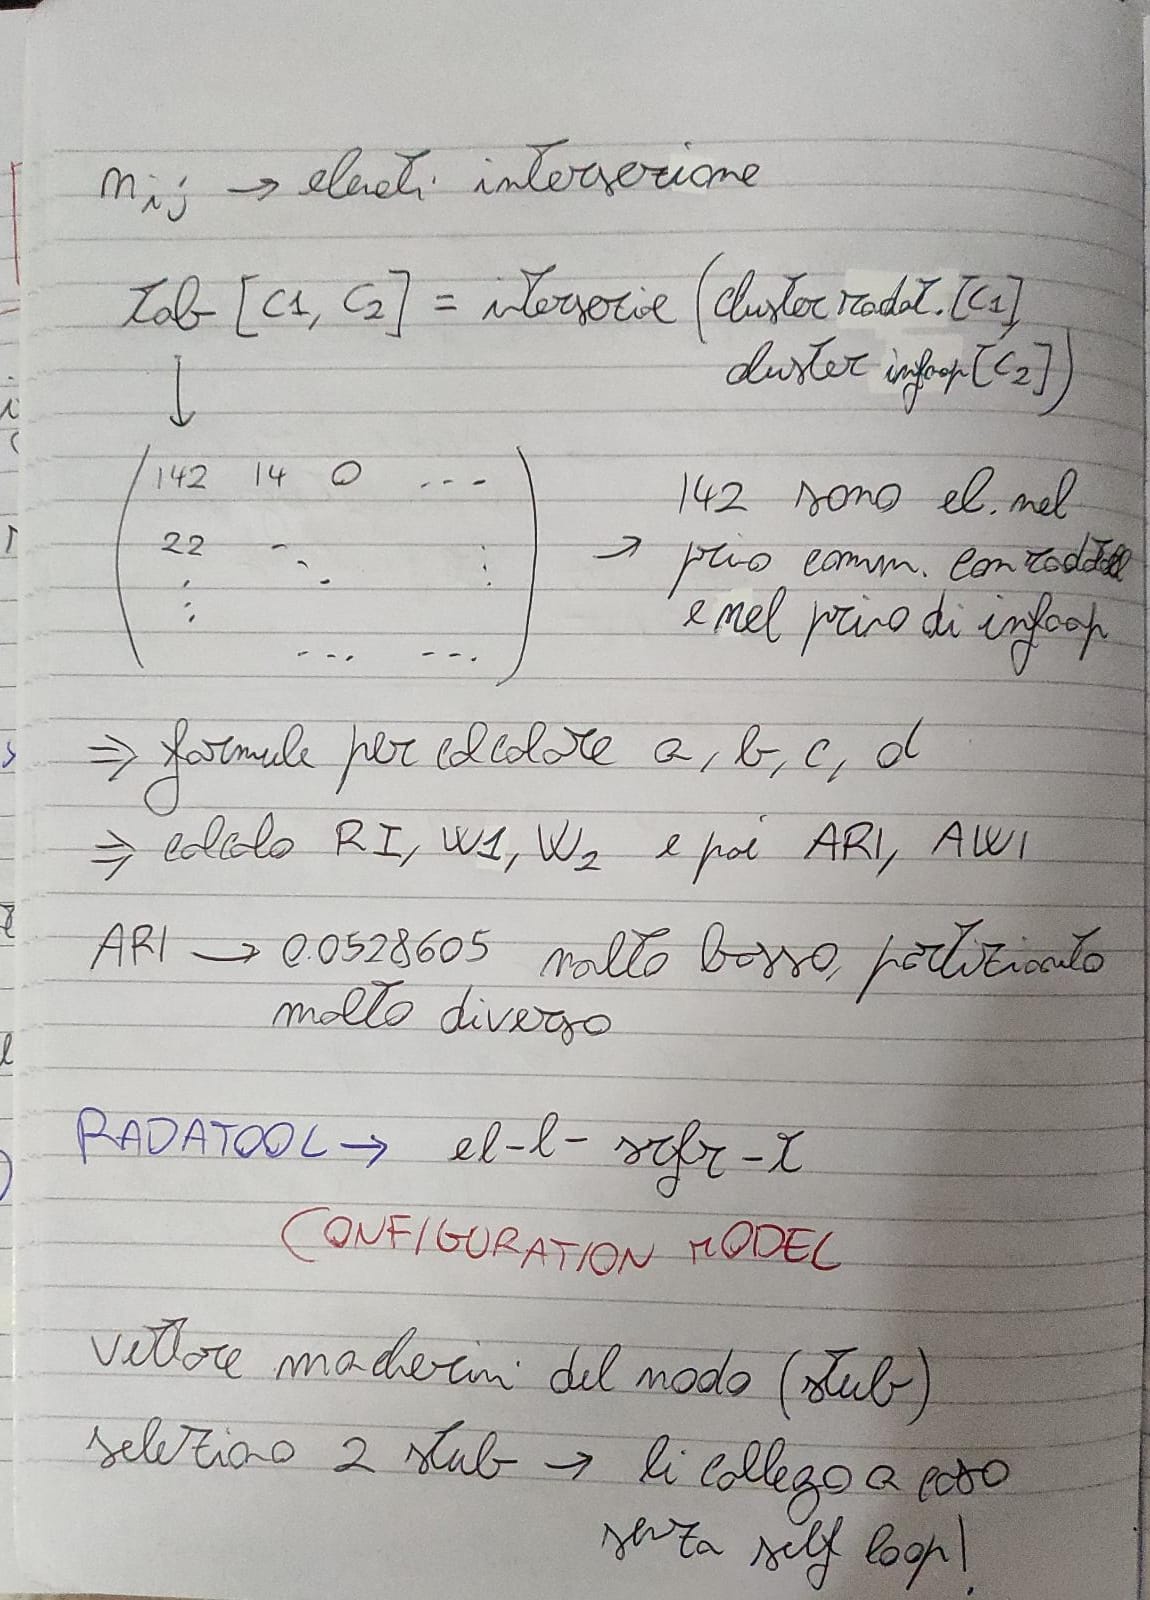 n_ij → eleneti intersezione
tab [C1, C2] = intersezioe (cluster radat.[C1],
cluster infoop[C2])
↓
142 14 0 ...
22
... ...
→ 142 sono el. nel
prio comm. con radat
e nel prino di infoop
⇒ formule per calcolare a, b, c, d
⇒ calcolo RI, W1, W2 e poi ARI, AWI
ARI → 0.0528605 molto basso, partizionato
molto diverso
RADATOOL → el-l- srfr-t
CONFIGURATION MODEL
vettore del nodo (stub)
seleziono 2 stub → li collego a caso
senza self loop!